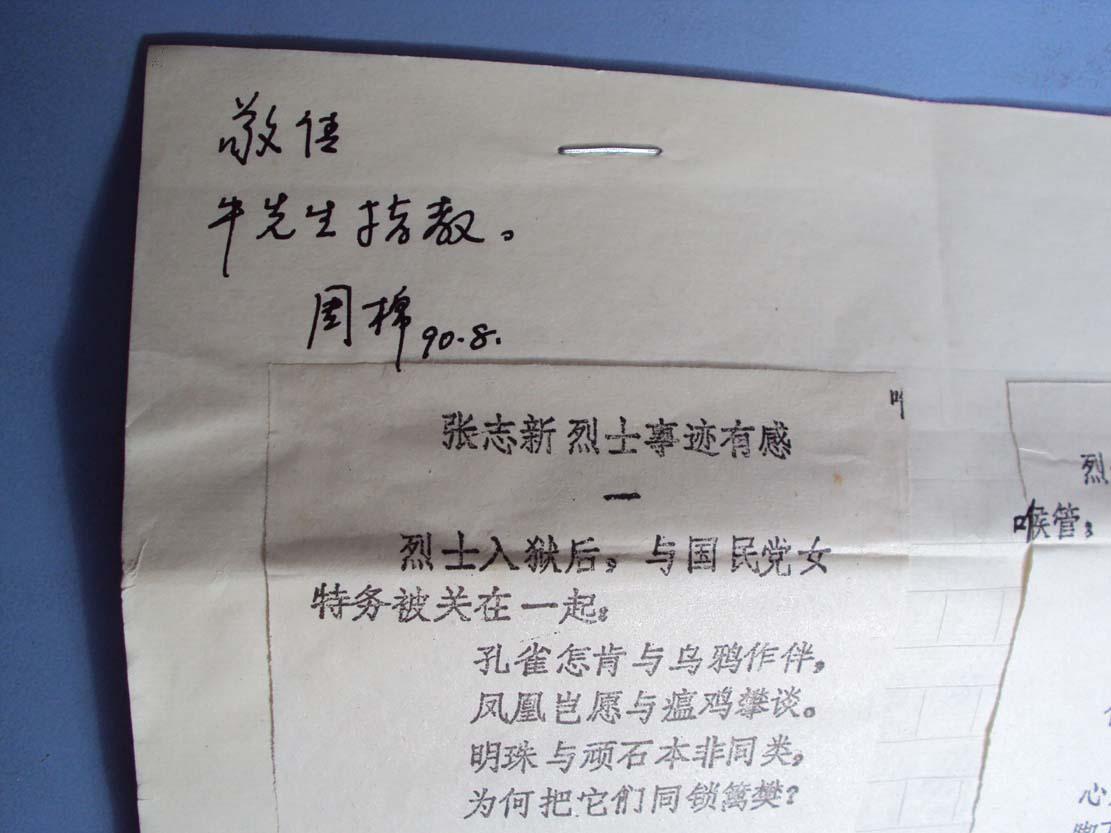 敬请
牛先生指教。
周棉 90.8.
张志新烈士事迹有感
一
烈士入狱后，与国民党女
特务被关在一起：
孔雀怎肯与乌鸦作伴，
凤凰岂愿与瘟鸡攀谈。
明珠与顽石本非同类，
为何把它们同锁篱樊？
烈
喉管；
心